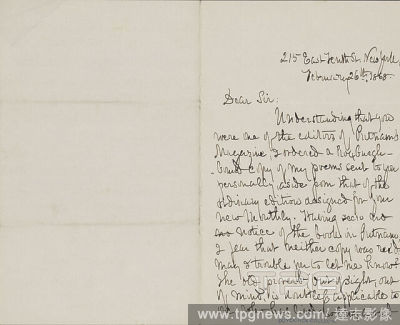 215 East Tenth St. New York,
February 26th, 1868.
Dear Sir:
Understanding that you
were one of the editors of Putnam's
Magazine, I ordered a Roxburgh-
bound copy of my poems sent to you
personally, aside from that of the
ordinary edition designed for your
new Monthly. Having seen no
notice of the book in Putnam,
I fear that neither copy was rec'd.
May I trouble you to let me know?
The old proverb, "out of sight, out
of mind," is doubtless applicable to
www.tpgnews.com 達志影像